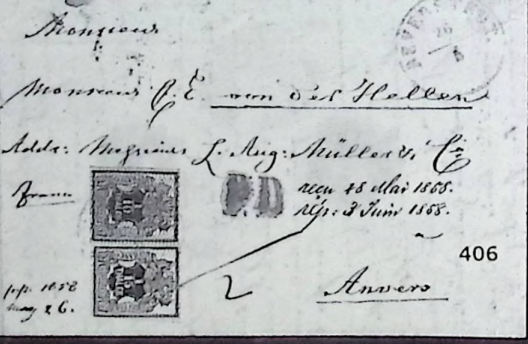 Monsieur
Monsieur G. E. van der Hellen
Addr: Messieurs L. Aug: Müller & Co
franco
PD
reçu 28 Mai 1858.
rép: 3 Juin 1858.
406
1858
2
Anvers